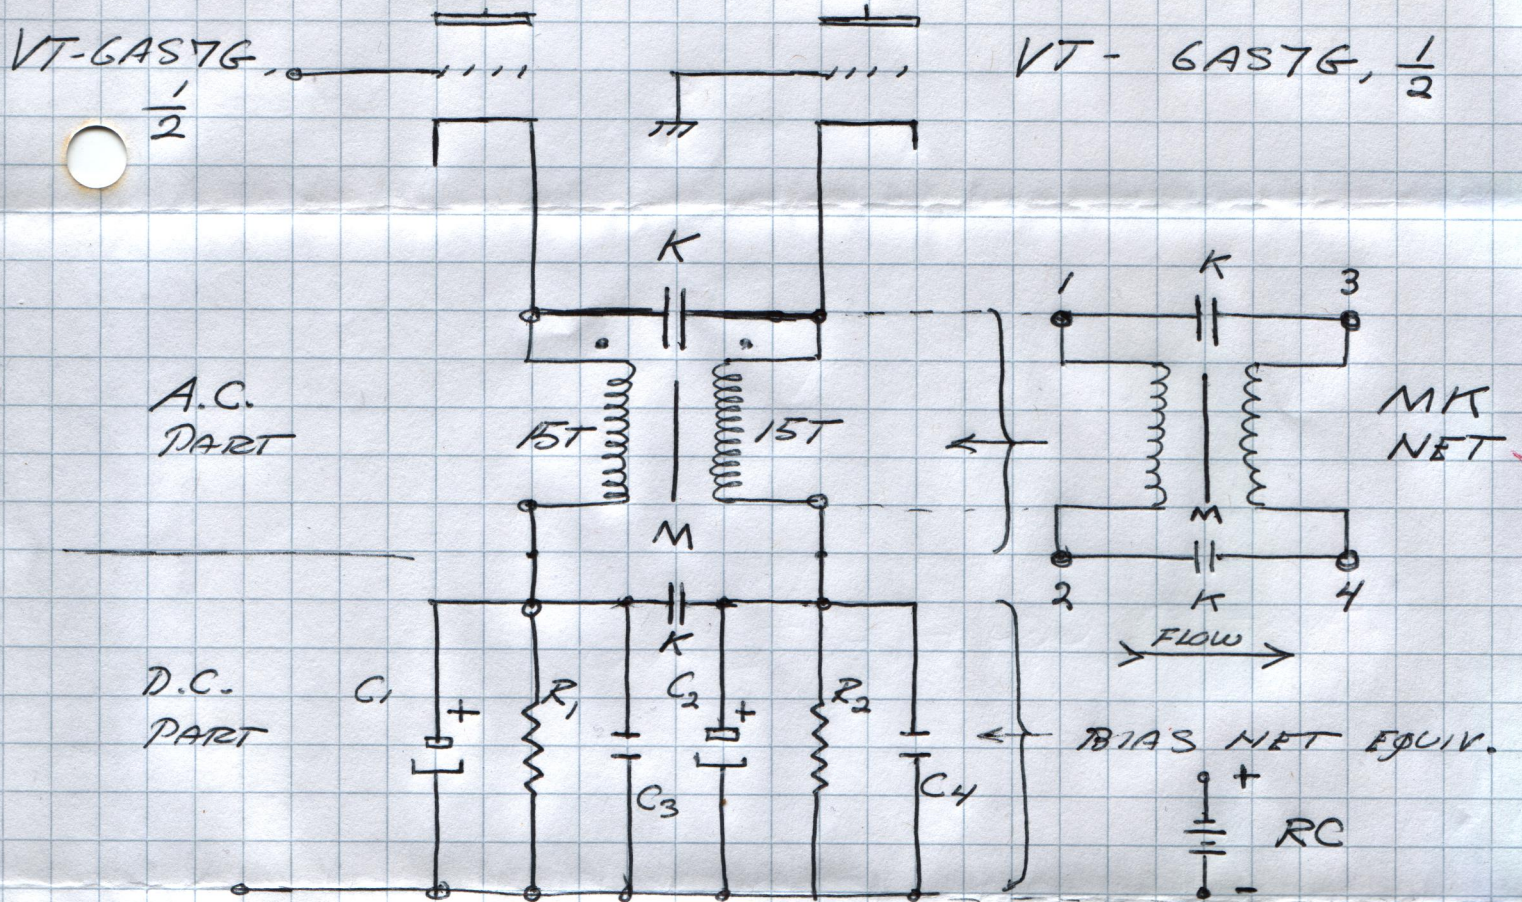 VT-6AS7G,
1/2
VT - 6AS7G, 1/2
K
1
K
3
A.C.
PART
15T
15T
MK
NET
M
M
2
K
4
K
FLOW
D.C.
PART
C1
+
R1
C2
+
R2
BIAS NET EQUIV.
C3
C4
+
RC
-